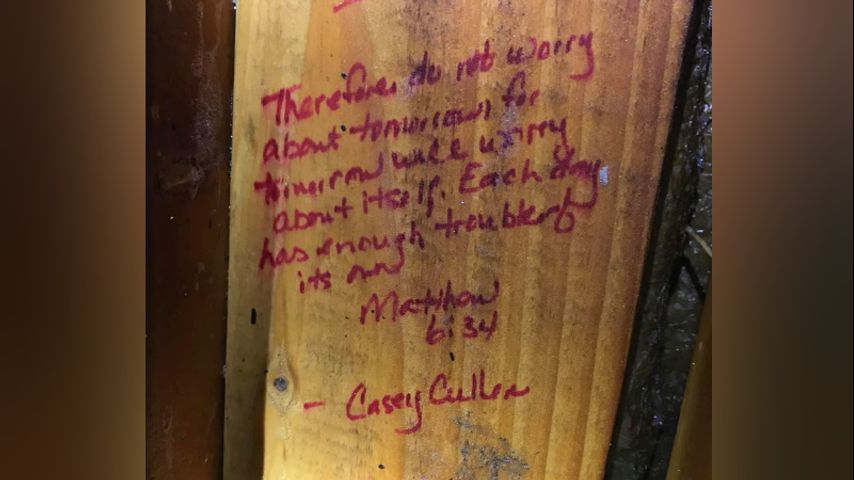 Therefore, do not worry
about tomorrow, for
tomorrow will worry
about itself. Each day
has enough trouble of
its own
Matthew
6:34
- Casey Cullen